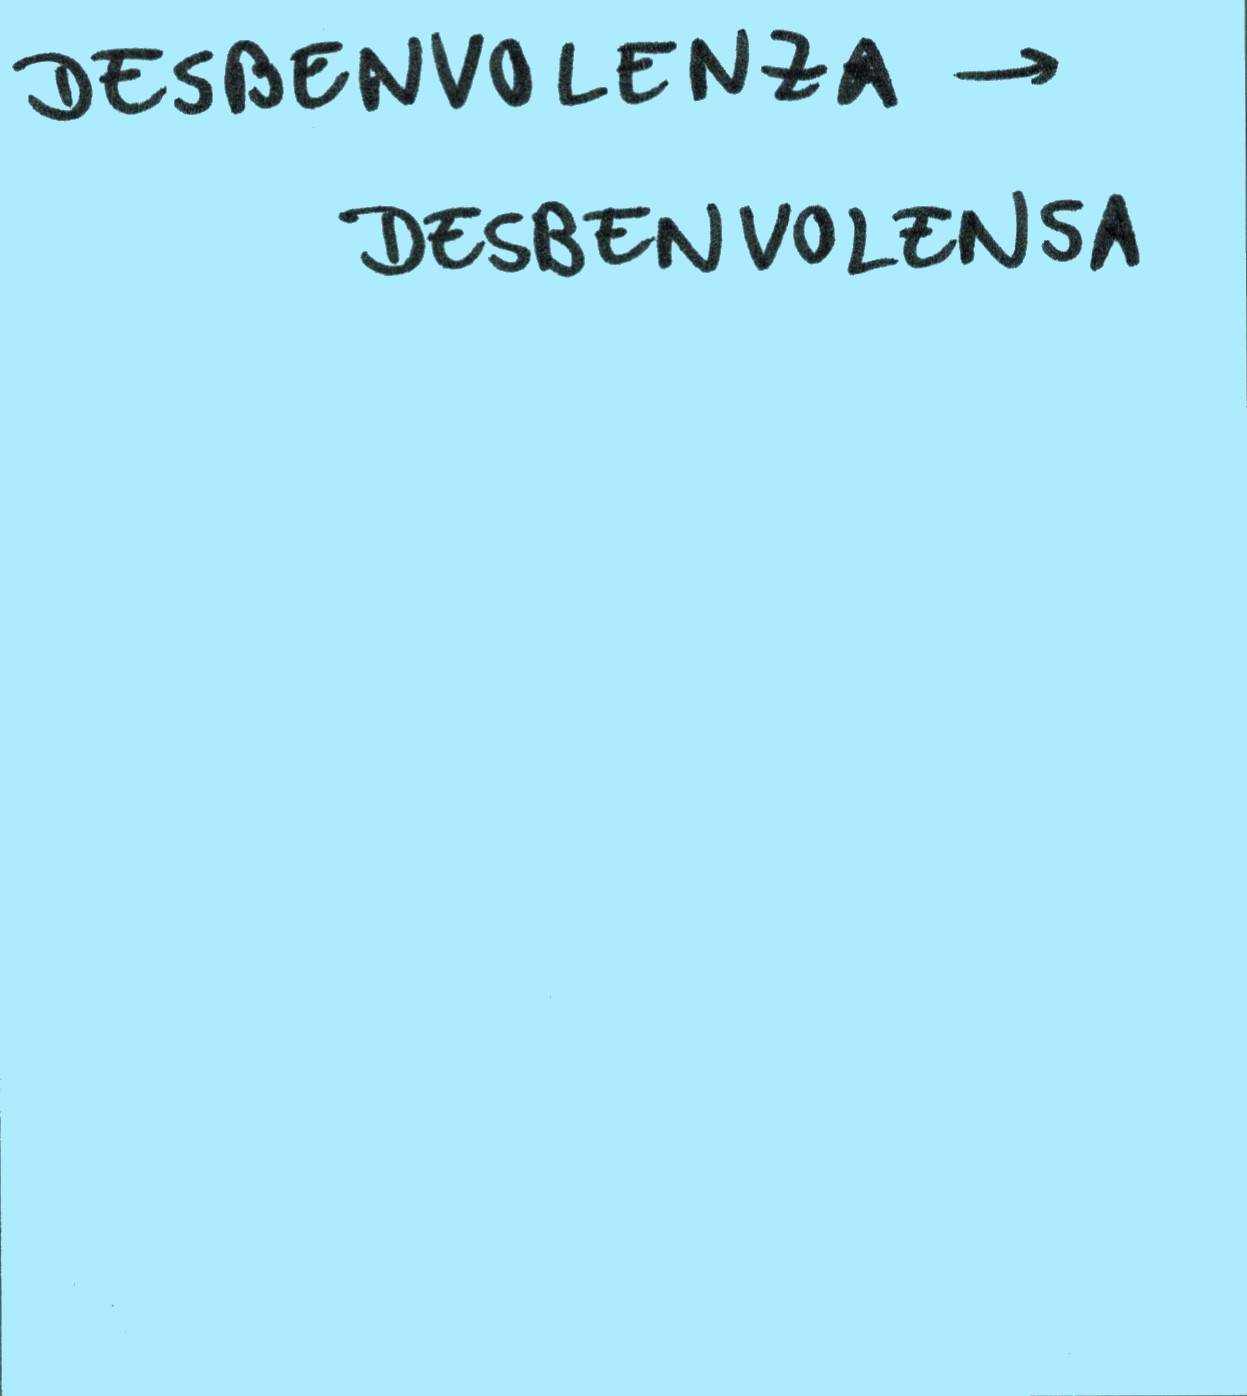 DESBENVOLENZA →
DESBENVOLENSA